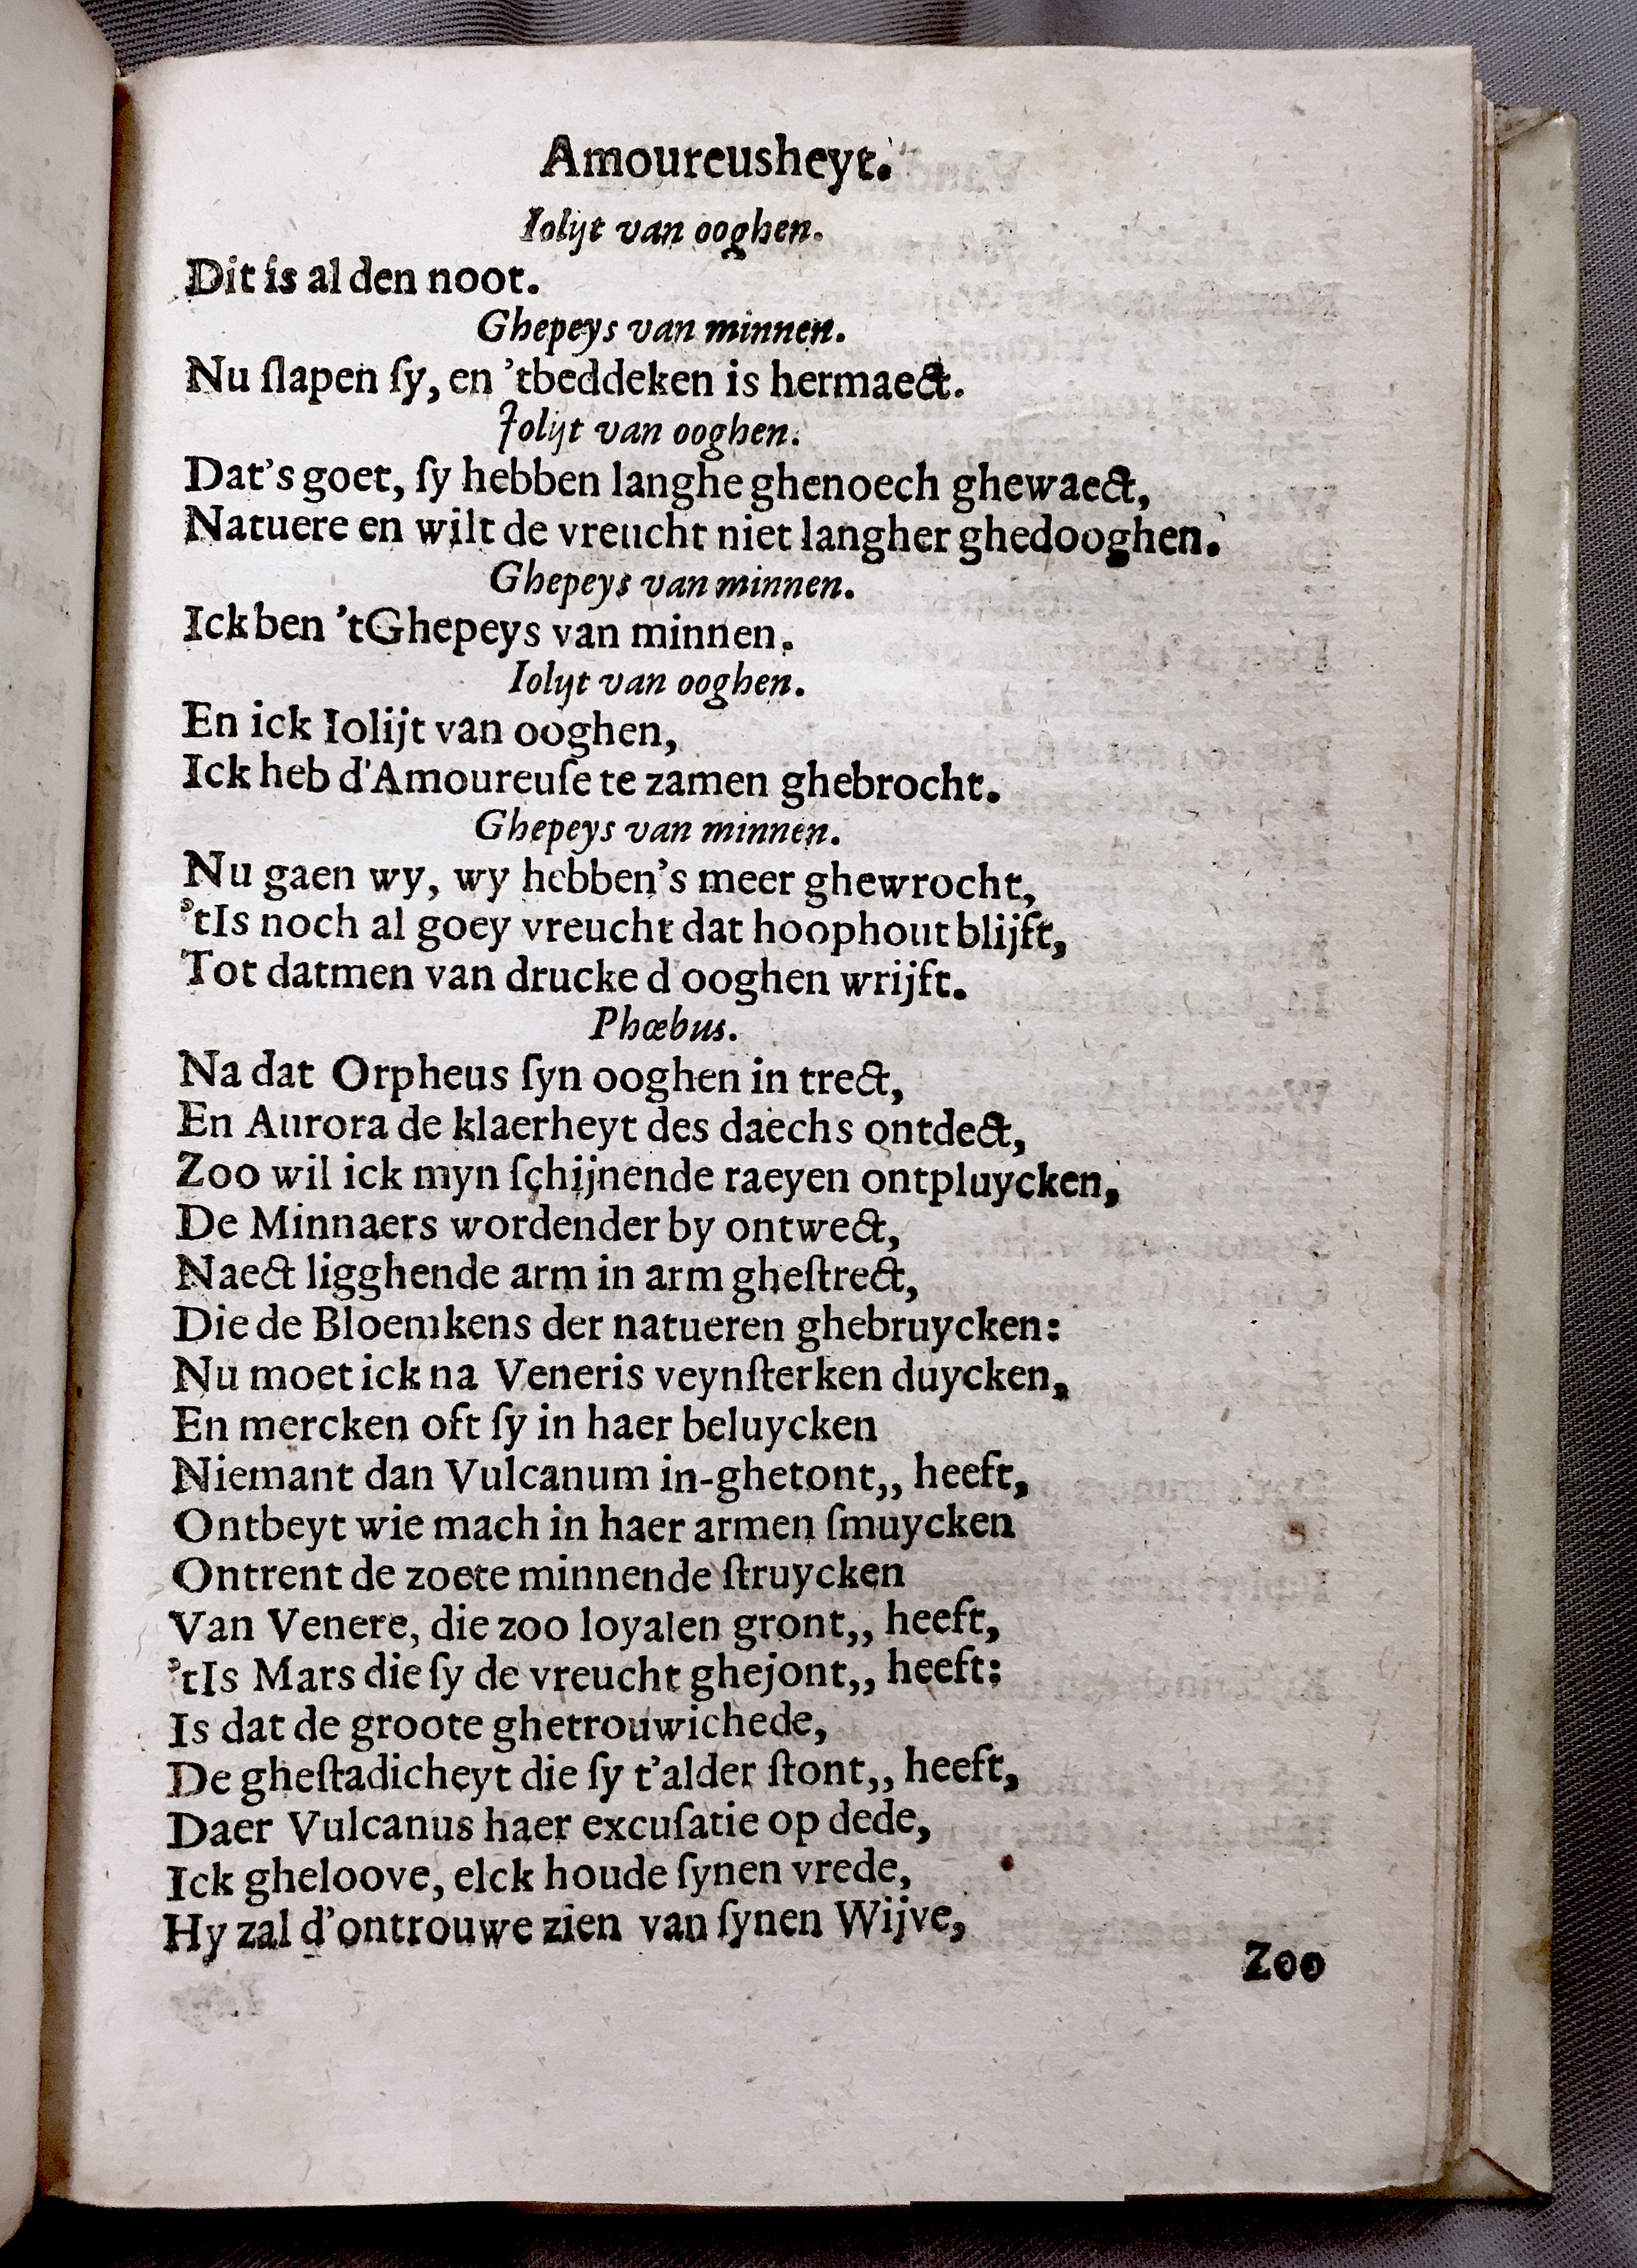 Amoureusheyt.
Iolijt van ooghen.
Dit is al den noot.
Ghepeys van minnen.
Nu ſlapen ſy, en ’tbeddeken is hermaect.
Jolijt van ooghen.
Dat’s goet, ſy hebben langhe ghenoech ghewaect,
Natuere en wilt de vreucht niet langher ghedooghen.
Ghepeys van minnen.
Ick ben ’tGhepeys van minnen.
Iolijt van ooghen.
En ick Iolijt van ooghen,
Ick heb d’Amoureuſe te zamen ghebrocht.
Ghepeys van minnen.
Nu gaen wy, wy hebben’s meer ghewrocht,
’tIs noch al goey vreucht dat hoophout blijft,
Tot datmen van drucke d ooghen wrijft.
Phœbus.
Na dat Orpheus ſyn ooghen in trect,
En Aurora de klaerheyt des daechs ontdect,
Zoo wil ick myn ſchijnende raeyen ontpluycken,
De Minnaers wordender by ontwect,
Naect ligghende arm in arm gheſtrect,
Die de Bloemkens der natueren ghebruycken:
Nu moet ick na Veneris veynſterken duycken,
En mercken oft ſy in haer beluycken
Niemant dan Vulcanum in-ghetont,, heeft,
Ontbeyt wie mach in haer armen ſmuycken
Ontrent de zoete minnende ſtruycken
Van Venere, die zoo loyalen gront,, heeft,
’tIs Mars die ſy de vreucht ghejont,, heeft:
Is dat de groote ghetrouwichede,
De gheſtadicheyt die ſy t’alder ſtont,, heeft,
Daer Vulcanus haer excuſatie op dede,
Ick gheloove, elck houde ſynen vrede,
Hy zal d’ontrouwe zien van ſynen Wijve,
Zoo